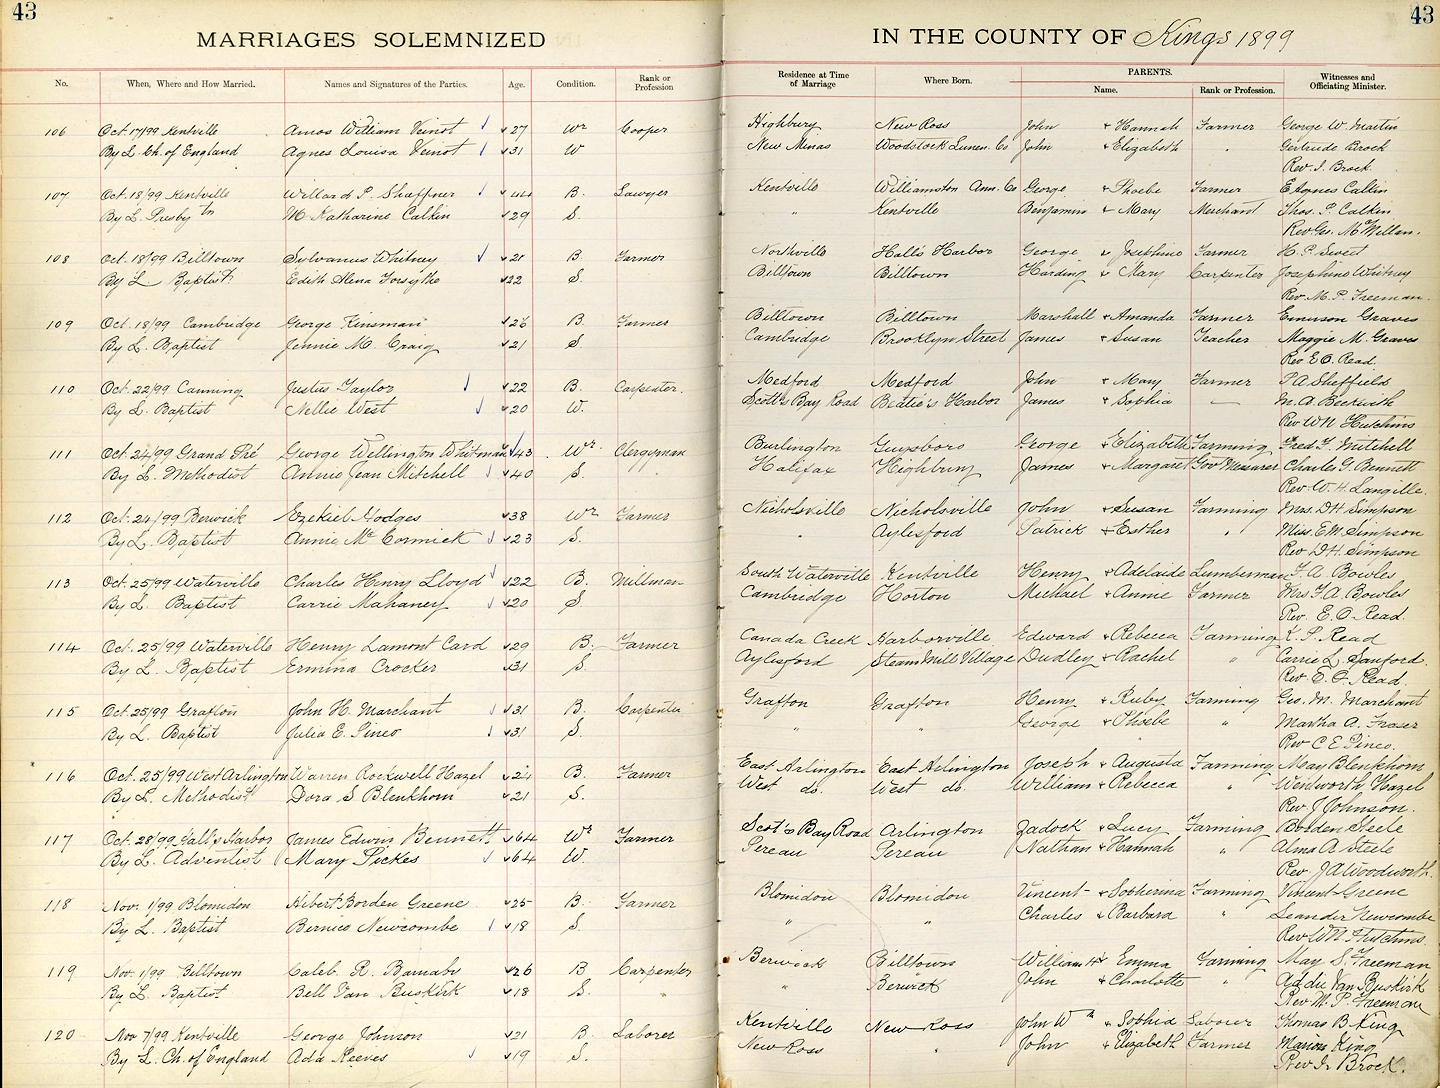 43
MARRIAGES SOLEMNIZED
No. When, Where and How Married. Names and Signatures of the Parties. Age. Condition. Rank or Profession
106 Oct. 17/99 Kentville Amos William Veinot 27 Wr Cooper
By L. Ch. of England Agnes Louisa Veinot 31 W
107 Oct. 18/99 Kentville Willard P. Shaffner 44 B. Lawyer
By L. Presbytn M. Katharine Calkin 29 S.
108 Oct. 18/99 Billtown Sylvanus Whitney 21 B. Farmer
By L. Baptist Edith Alena Forsythe 22 S.
109 Oct. 18/99 Cambridge George Kinsman 26 B. Farmer
By L. Baptist Jennie M. Craig 21 S
110 Oct. 22/99 Canning Justus Taylor 22 B. Carpenter.
By L. Baptist Nellie West 20 W.
111 Oct. 24/99 Grand Pré George Wellington Whitman 43 Wr. Clergyman
By L. Methodist Annie Jean Mitchell 40 S.
112 Oct. 24/99 Berwick Ezekiel Hodges 38 Wr Farmer
By L. Baptist Annie Mc Cormick 23 S.
113 Oct. 25/99 Waterville Charles Henry Lloyd 22 B. Millman
By L. Baptist Carrie Mahaney 20 S
114 Oct. 25/99 Waterville Henry Lamont Card 29 B. Farmer
By L. Baptist Ermina Crocker 31 S.
115 Oct. 25/99 Grafton John H. Marchant 31 B. Carpenter
By L. Baptist Julia E. Pineo 31 S.
116 Oct. 25/99 West Arlington Warren Rockwell Hazel 24 B. Farmer
By L. Methodist Dora S Blenkhorn 21 S.
117 Oct. 28/99 Hall's Harbor James Edwin Bennett 64 Wr Farmer
By L. Adventist Mary Pickes 64 W.
118 Nov. 1/99 Blomidon Albert Borden Greene 25 B. Farmer
By L. Baptist Bernice Newcombe 18 S.
119 Nov. 1/99 Billtown Caleb. R. Barnaby 26 B Carpenter
By L. Baptist Bell Van Buskirk 18 S. "
120 Nov 7/99 Kentville George Johnson 21 B. Laborer
By L. Ch. of England Ada Reeves 19 S.
43
IN THE COUNTY OF Kings 1899
Residence at Time of Marriage Where Born. PARENTS. Name. Rank or Profession. Witnesses and Officiating Minister.
Highbury New Ross John & Hannah Farmer George W. Martin
New Minas Woodstock Lunen. Co John & Elizabeth " Gertrude Brock
Rev. I. Brock.
Kentville Williamston Ann. Co George & Phoebe Farmer E Agnes Calkin
" Kentville Benjamin & Mary Merchant Thos. P. Calkin
Rev Geo. McMillan.
Northville Hall's Harbor George & Josephine Farmer H. P. Sweet
Billtown Billtown Harding & Mary Carpenter Josephine Whitney
Rev. M. P. Freeman.
Billtown Billtown Marshall & Amanda Farmer Emerson Graves
Cambridge Brooklyn Street James & Susan Teacher Maggie M. Graves
Rev E. O. Read.
Medford Medford John & Mary Farmer P. A. Sheffield
Scott's Bay Road Harbor James & Sophia — M. A. Beckwith
Rev W N. Hutchins
Burlington Guysboro George & Elizabeth Farming Fred. F. Mitchell
Halifax Highbury James & Margaret Gov Measurer Charles G. Bennett
Rev. W. H. Langille.
Nicholsville Nicholsville John & Susan Farming Mrs. D. H. Simpson
" Aylesford Patrick & Esther " Miss. E. W. Simpson
Rev D. H. Simpson
South Waterville Kentville Henry & Adelaide Lumberman F. A. Bowles
Cambridge Horton Michael & Annie Farmer Mrs F. A. Bowles
Rev. E. O. Read.
Canada Creek Harborville Edward & Rebecca Farming P. Read
Aylesford Steam Mill Village Dudley & Rachel " Carrie L. Sanford.
Rev E. O. Read
Grafton Grafton Henry & Ruby Farming Geo. M. Marchant
" " George & Phoebe " Martha A. Fraser
Rev C E Pineo.
East Arlington East Arlington Joseph & Augusta Farming May Blenkhorn
West do. West do. William & Rebecca " Wentworth Hazel
Rev J. Johnson.
Scot's Bay Road Arlington Zadock & Lucy Farming Borden Steele
Pereau Pereau Nathan & Hannah " Alma A. Steele
Rev. J A Woodworth.
Blomidon Blomidon Vincent & Farming Vincent Greene
" " Charles & Barbara " Leander Newcombe
Rev W N. Hutchins
Berwick Billtown William H & Emma Farming May S. Freeman
" Berwick John & Charlotte " Addie Van Buskirk
Rev M. P. Freeman
Kentville New Ross John Wm & Sophia Laborer Thomas B. King
New Ross " John & Elizabeth Farmer Marion King
Rev I. Brock.